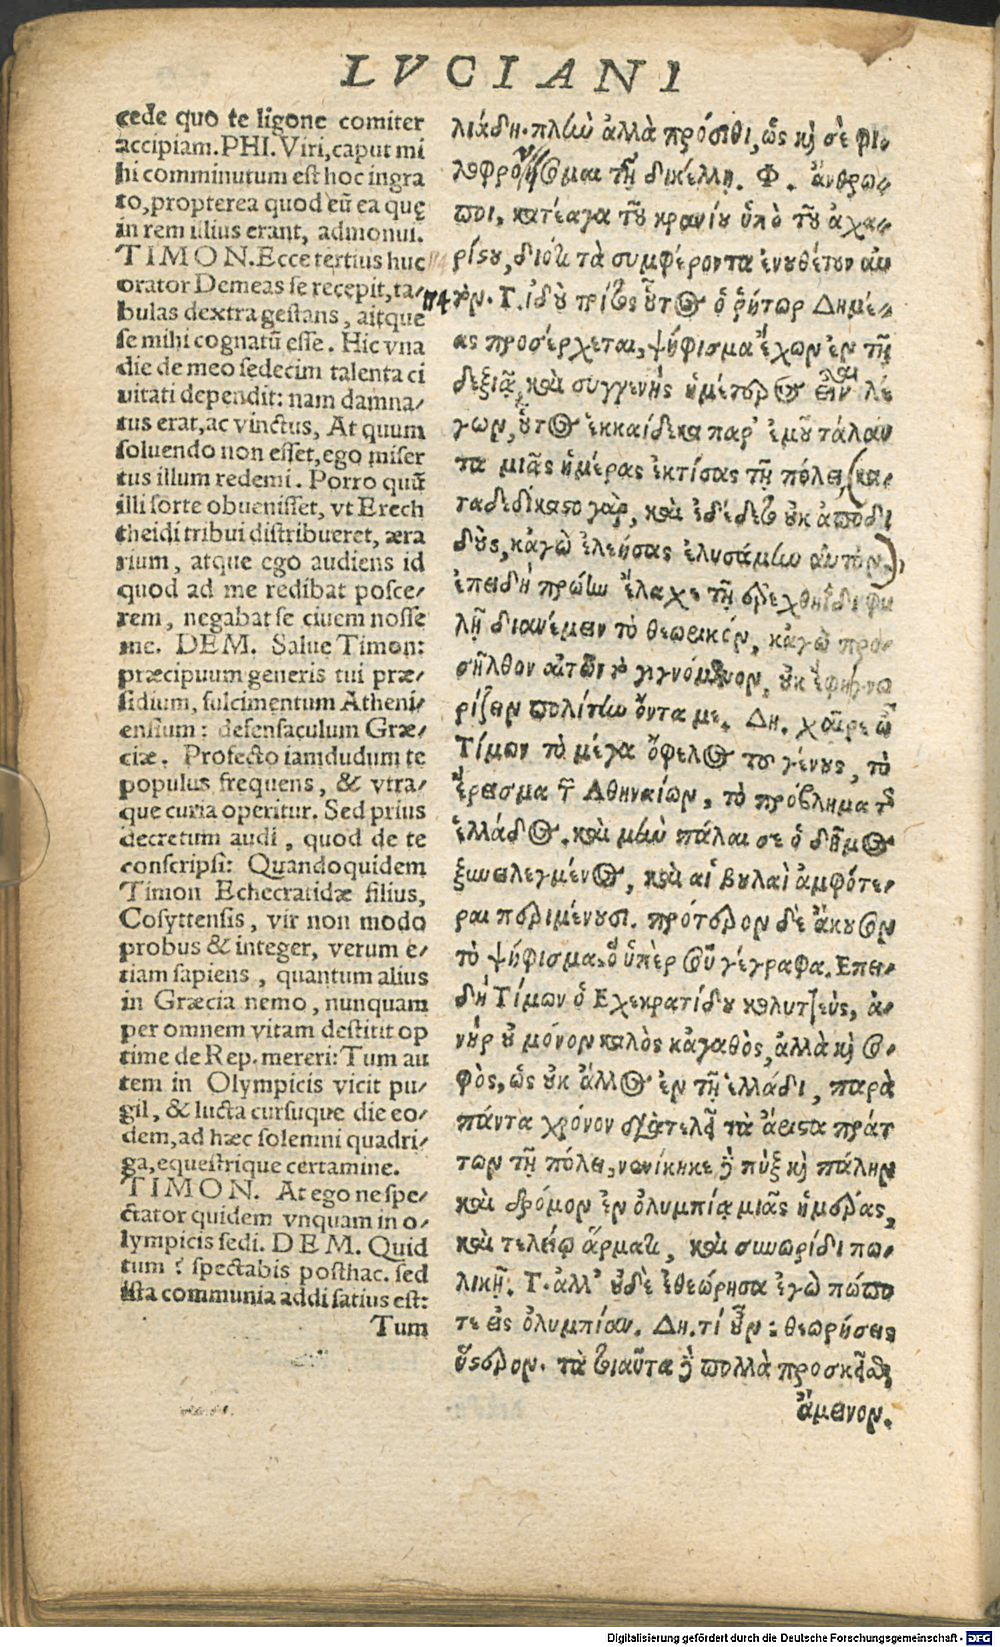 LVCIANI
cede quo te ligone comiter
accipiam. PHI. Viri, caput mi
hi comminutum est hoc ingra
to, propterea quod eũ ea quę
in rem illius erant, admonui.
TIMON. Ecce tertius huc
orator Demeas se recepit, ta/
bulas dextra gestans, aitque
se mihi cognatũ esse. Hic vna
die de meo sedecim talenta ci
uitati dependit: nam damna/
tus erat, ac vinctus, At quum
soluendo non esset, ego miser
tus illum redemi. Porro quũ
illi sorte obuenisset, vt Erech
theidi tribui distribueret, æra
rium, atque ego audiens id
quod ad me redibat posce/
rem, negabat se ciuem nosse
me. DEM. Salue Timon:
præcipuum generis tui præ/
sidium, fulcimentum Atheni/
ensium: defensaculum Græ/
ciæ. Profecto iamdudum te
populus frequens, & vtra/
que curia operitur. Sed prius
decretum audi, quod de te
conscripsi: Quandoquidem
Timon Echecratidæ filius,
Cosyttensis, vir non modo
probus & integer, verum e/
tiam sapiens, quantum alius
in Græcia nemo, nunquam
per omnem vitam destitit op
time de Rep. mereri: Tum au
tem in Olympicis vicit pu/
gil, & lucta cursuque die eo/
dem, ad hæc solemni quadri/
ga, equestrique certamine.
TIMON. At ego ne spe/
ctator quidem vnquam in o/
lympicis sedi. DEM. Quid
tum? spectabis posthac. sed
ista communia addi satius est:
Tum
λιάδη. πλὴν ἀλλὰ πρόσιθι, ὡς κὴ σὲ φι-
λοφρο μαι τῇ δικέλλῃ. Φ. ἄνθρω-
ποι, κατέαγα τοῦ κρανίου ὑπὸ τοῦ ἀχα-
ρίστου, διότι τὰ συμφέροντα ἐνουθέτουν αὐ
τόν. Τ. ἰδοὺ τρίτος οὗτος ὁ ῥήτωρ Δημέ-
ας προσέρχεται, ψήφισμα ἔχων ἐν τῇ
δεξιᾷ, καὶ συγγενὴς ἡμέτερος εἶναι λέ
γων, οὗτος ἑκκαίδεκα παρ' ἐμοῦ τάλαν
τα μιᾶς ἡμέρας ἐκτίσας τῇ πόλει, (κα-
ταδεδίκαστο γὰρ, καὶ ἐδέδετο οὐκ ἀποδι
δοὺς, κἀγὼ ἐλεήσας ἐλυσάμην αὐτόν.)
ἐπειδὴ πρώην ἔλαχε τῇ ἐρεχθηΐδι φυ
λῇ διανέμειν τὸ θεωρικόν, κἀγὼ προ-
σῆλθον αἰτῶν τὸ γιγνόμενον, οὐκ ἔφη γνω
ρίζειν πολίτην ὄντα με. Δη. χαῖρε ὦ
Τίμων τὸ μέγα ὄφελος τοῦ γένους, τὸ
ἔρεισμα τῶν Ἀθηναίων, τὸ πρόβλημα τῆς
ἑλλάδος. καὶ μὴν πάλαι σε ὁ δῆμος
ξυνειλεγμένος, καὶ αἱ βουλαὶ ἀμφότε-
ραι περιμένουσι. πρότερον δὲ ἄκουσον
τὸ ψήφισμα. ὃ ὑπὲρ σοῦ γέγραφα. Επει-
δὴ Τίμων ὁ Εχεκρατίδου κολυττεὺς, ἀ-
νὴρ οὐ μόνον καλὸς κἀγαθὸς, ἀλλὰ κὴ σο-
φὸς, ὡς οὐκ ἄλλος ἐν τῇ ἑλλάδι, παρὰ
πάντα χρόνον διατελεῖ τὰ ἄριστα πράτ
των τῇ πόλει, νενίκηκε δὲ πὺξ κὴ πάλην
καὶ δρόμον ἐν ὀλυμπίᾳ μιᾶς ἡμέρας,
καὶ τελείῳ ἅρματι, καὶ συνωρίδι πω-
λικῇ. Τ. ἀλλ' οὐδὲ ἐθεώρησα ἐγὼ πώπο
τε εἰς ὀλυμπίαν. Δη. τί οὖν; θεωρήσεις
ὕστερον. τὰ τοιαῦτα δὲ πολλὰ προσκεῖσθαι
ἄμεινον.
Digitalisierung gefördert durch die Deutsche Forschungsgemeinschaft - DFG